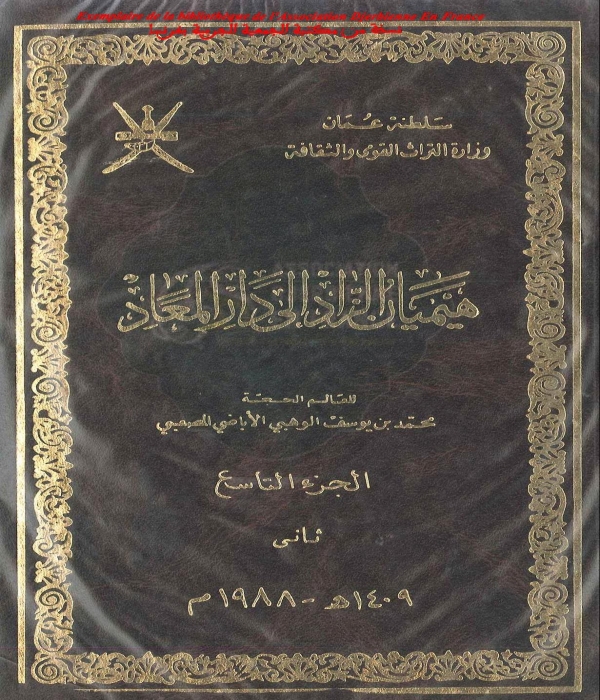 Exemplaire de la Bibliothèque de l'Association Djerbienne En France
نسخة من مكتبة الجمعية الجربية بفرنسا
سلطنة عُمان
وزارة التراث القومى والثقافة
هيميان الزاد إلى دار المعاد
للعالم الحجة
محمد بن يوسف الوهبي الأباضي المصعبي
الجزء التاسع
ثانى
١٤٠٩هـ - ١٩٨٨م